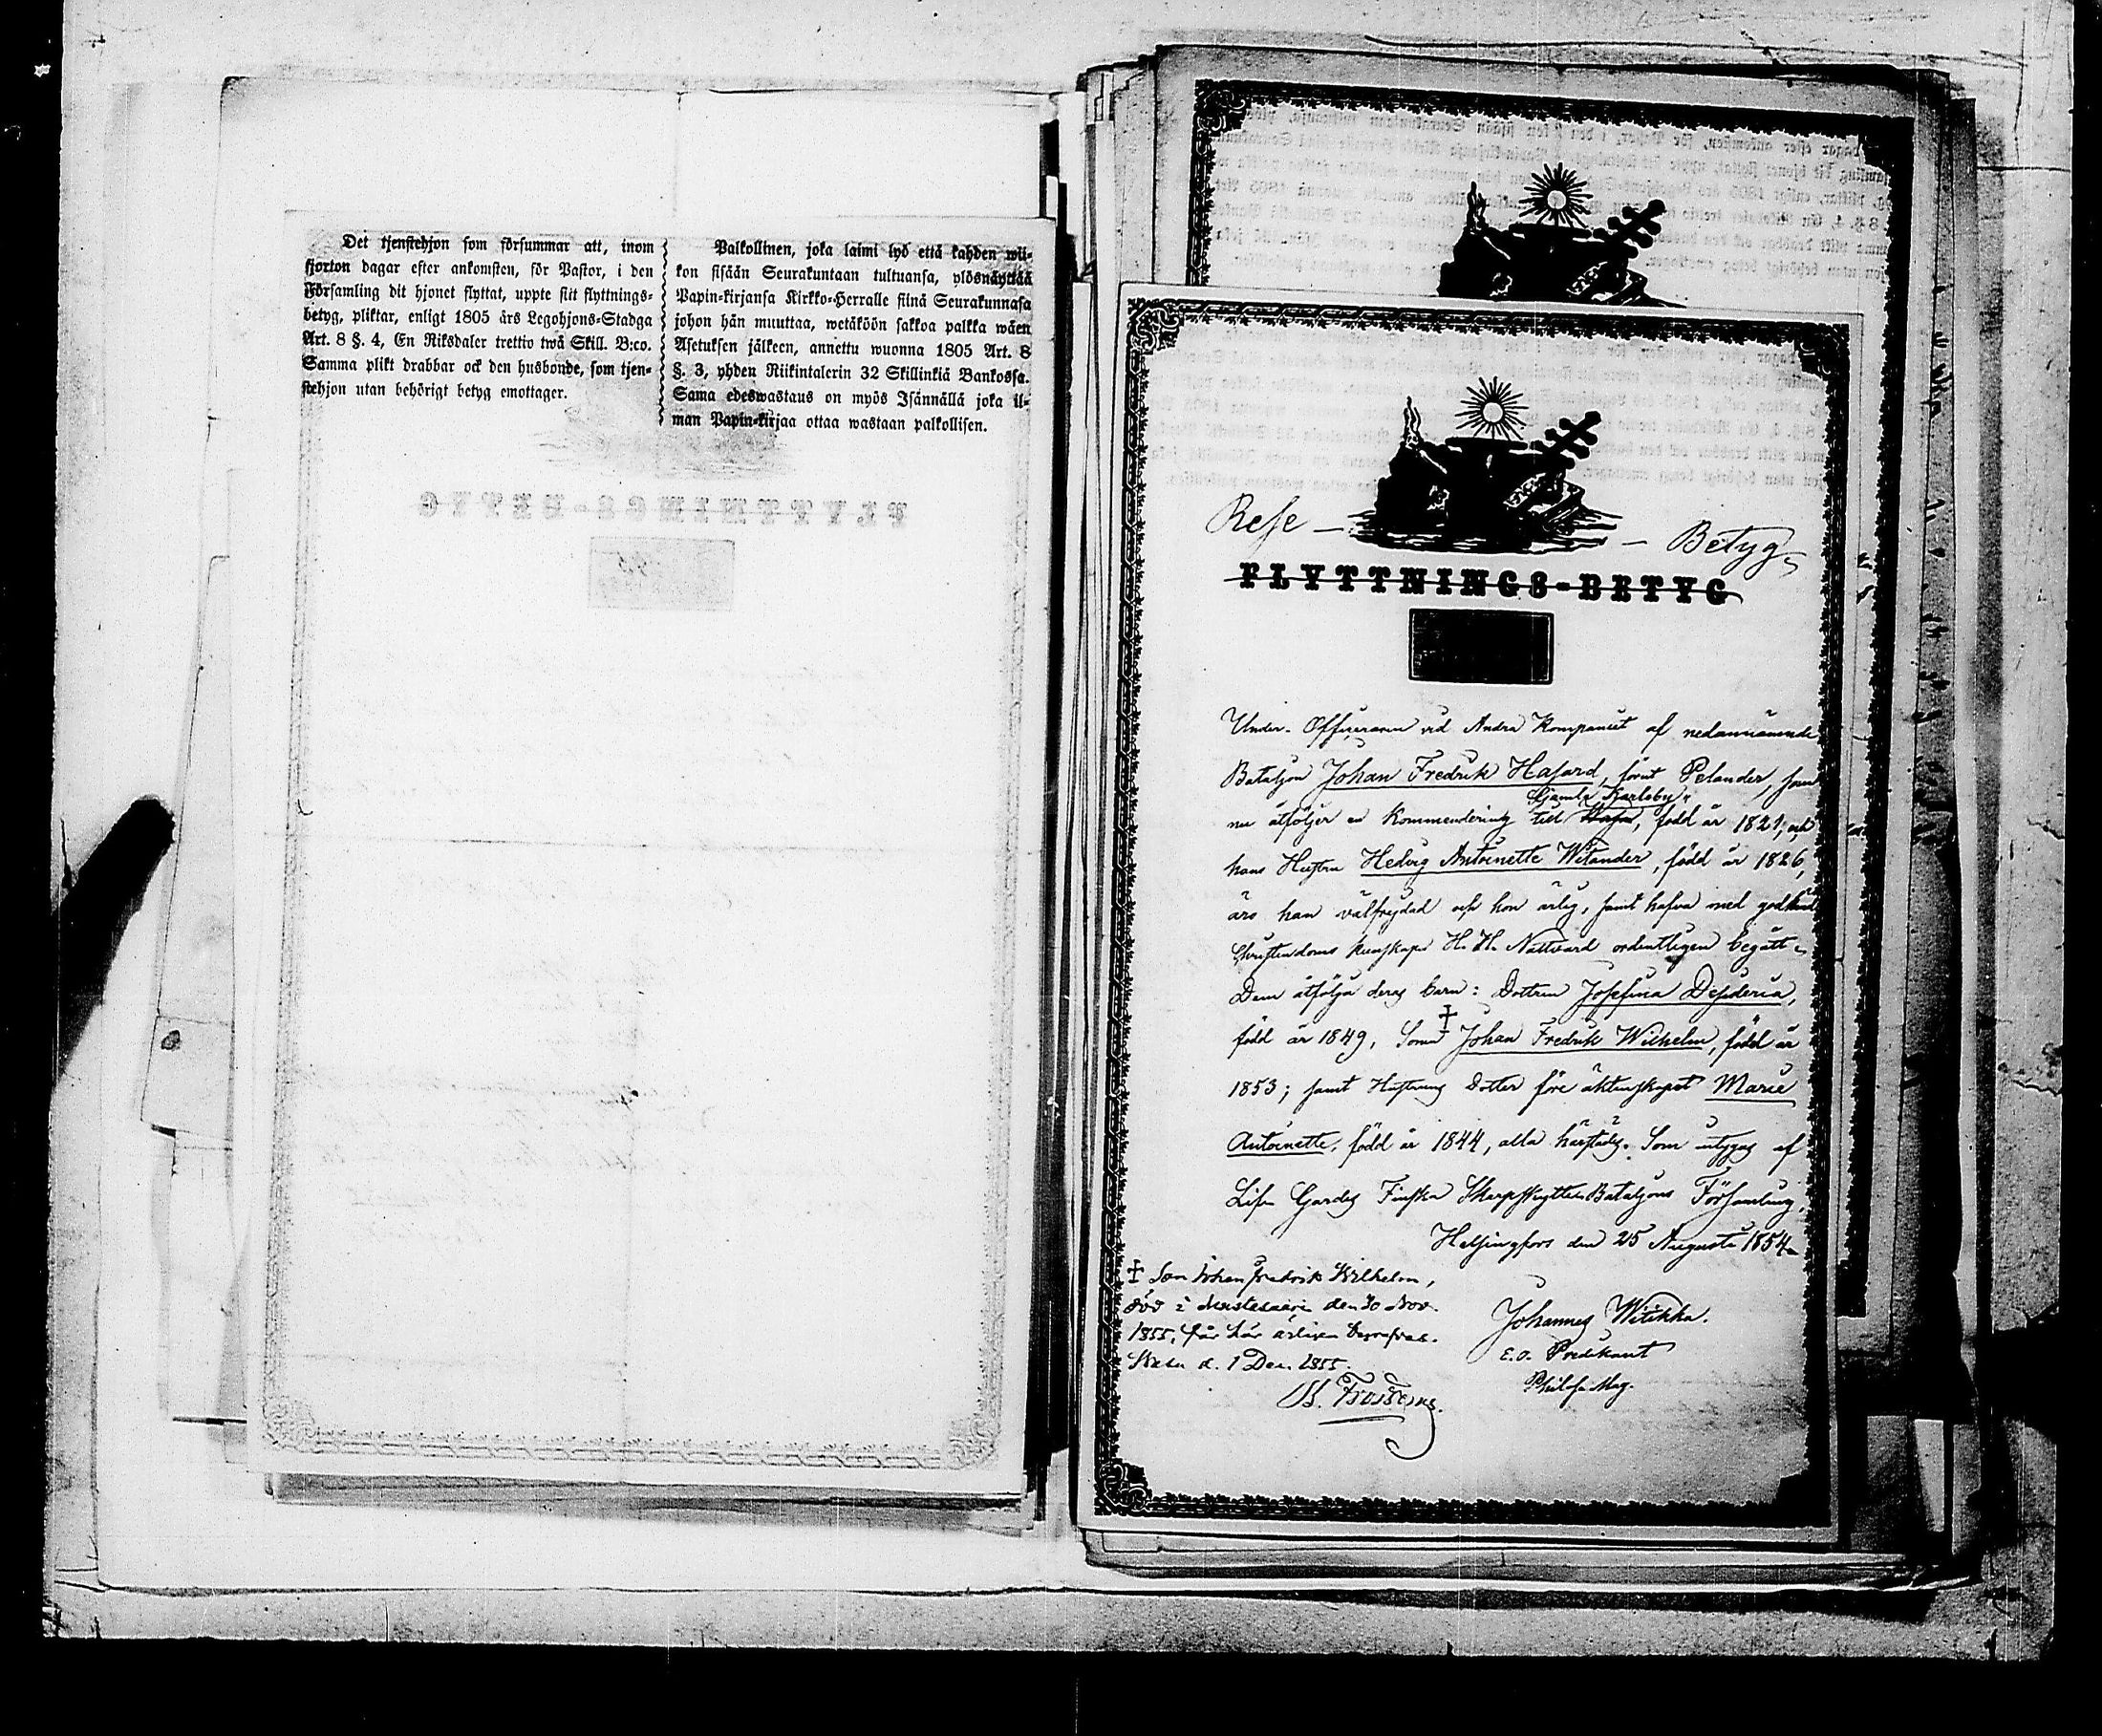 Det tjenstehjon som försummar att, inom
fjorton dagar efter ankomsten, för Pastor, i den
Församling dit hjonet flyttat, uppte sitt flyttnings-
betyg, pliktar, enligt 1805 års Legohjons-Stadga
Art. 8 §. 4, En Riksdaler trettio twå Skill. B:co.
Samma plikt drabbar ock den husbonde, som tjen-
stehjon utan behörigt betyg emottager.
Palkollinen, joka laimi lyö että kahden wii-
kon sisään Seurakuntaan tultuansa, ylösnäyttää
Papin-kirjansa Kirkko-Herralle siinä Seurakunnasa
johon hän muuttaa, wetäköön sakkoa palkka wäen
Asetuksen jälkeen, annettu wuonna 1805 Art. 8
§. 3, yhden Riikintalerin 32 Skillinkiä Bankossa.
Sama edeswastaus on myös Isännällä joka il-
man Papin-kirjaa ottaa wastaan palkollisen.
Rese - - Betyg
FLYTTNINGS-BETYG
Under-Officeraren vid Andra Kompaniet af nedannämnde
Bataljon Johan Fredrik Hasard, förut Pelander, som
Gamla Karleby
nu åtföljer en Kommendering till Wasa, född år 1821, och
hans Hustru Hedvig Antoinette Witander, född år 1826,
äro han välfrejdad och hon ärlig, samt hafva med godkänd
Christendoms kunskaper H. H. Nattvard ordentligen begått.
Dem åtfölja deras barn: Dottren Josefina Desideria,
född år 1849, Sonen ‡ Johan Fredrik Wilhelm, född år
1853; samt Hustruns Dotter före äktenskapet Marie
Antoinette, född år 1844, alla härstädes. Som intygas af
Lif Gardes Finska Skarpskytte Bataljons Församling,
Helsingfors den 25 Augusti 1854
Johannes Witikka.
E.O. Predikant
Philos. Mag.
‡ Son Johan Fredrik Wilhelm,
död i Mustasaari den 30 Nov.
1855, får här ärligen begrafvas.
Wasa d. 1 Dec. 1855.